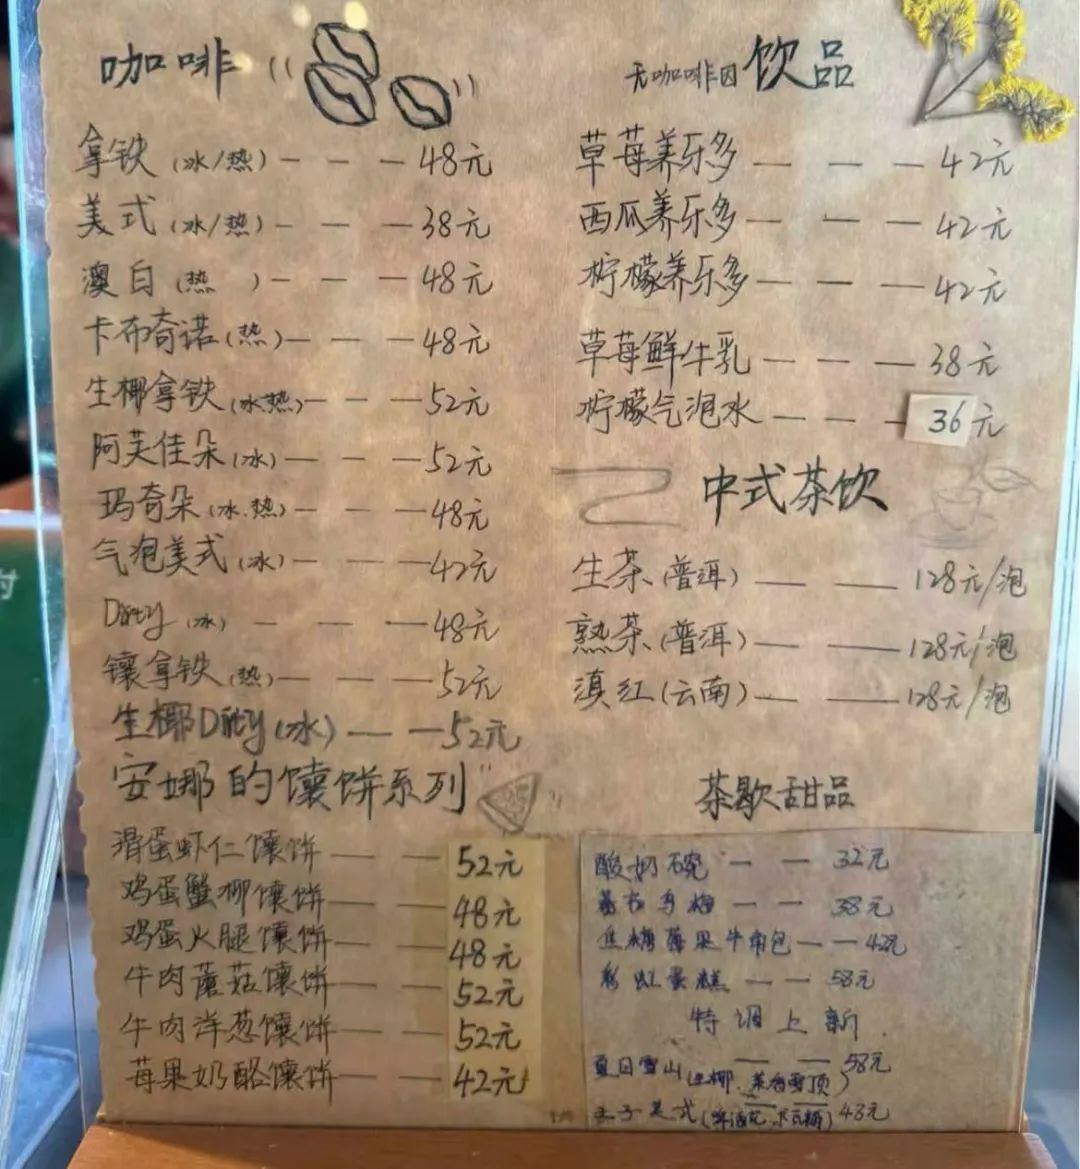 咖啡
拿铁(冰/热)———48元
美式(冰/热)———38元
澳白(热 )———48元
卡布奇诺(热)———48元
生椰拿铁(冰.热)———52元
阿芙佳朵(冰)———52元
玛奇朵(冰.热)———48元
气泡美式(冰)———42元
Dirty(冰)———48元
镶拿铁(热)———52元
生椰Dirty(冰)——52元
安娜的馕饼系列
滑蛋虾仁馕饼——52元
鸡蛋蟹柳馕饼——48元
鸡蛋火腿馕饼——48元
牛肉蘑菇馕饼——52元
牛肉洋葱馕饼——52元
莓果奶酪馕饼——42元
无咖啡因饮品
草莓养乐多———42元
西瓜养乐多———42元
柠檬养乐多———42元
草莓鲜牛乳———38元
柠檬气泡水———36元
中式茶饮
生茶(普洱)——128元/泡
熟茶(普洱)——128元/泡
滇红(云南)——128元/泡
茶歇甜品
酸奶碗——32元
——38元
焦糖莓果牛角包——42元
彩虹蛋糕——58元
特调上新
夏日雪山(生椰、茶香雪顶)——58元
美式 43元